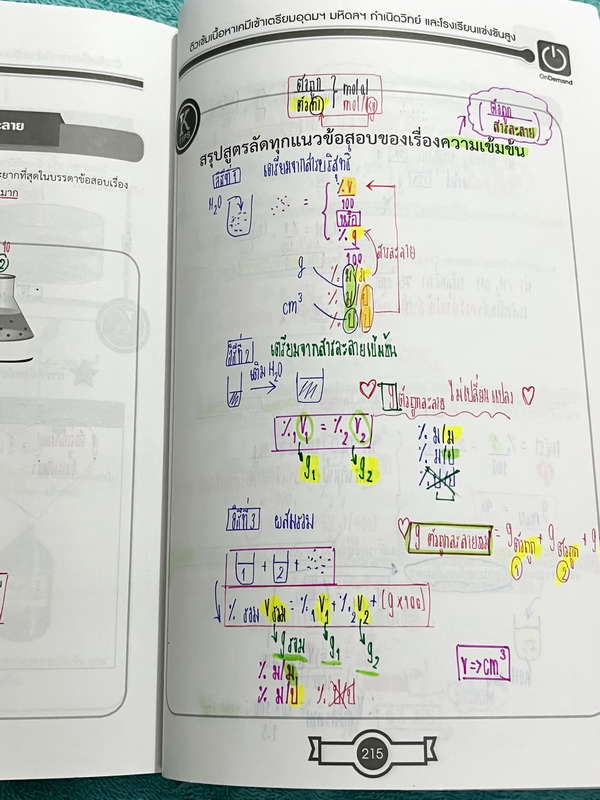 ติวเข้มเนื้อหาเคมีเข้าเตรียมอุดมฯ มหิดลฯ กำเนิดวิทย์ และโรงเรียนแข่งขันสูง
OnDemand
ตัวถูก
ตัวทำ
mol/
mol/kg
ตัวถูก
สารละลาย
สรุปสูตรลัดทุกแนวข้อสอบของเรื่องความเข้มข้น
วิธีที่ 1 เตรียมจากสารบริสุทธิ์
H₂O
=
% v
100
หรือ
% g
100
สารละลาย
g
% ม/ม
% ม/ป
cm³
% ป/ป
วิธีที่ 2 เตรียมจากสารละลายเข้มข้น
เติม H₂O
g ตัวถูกละลาย ไม่เปลี่ยนแปลง
%₁ V₁ = %₂ V₂
g₁ g₂
% ม/ม
% ม/ป
% ป/ป
วิธีที่ 3 ผสมรวม
g ตัวถูกละลายรวม = g ตัวถูก + g ตัวถูก + g
1 2
1 + 2 +
% รวม V รวม = %₁ V₁ + %₂ V₂ + (g × 100)
g รวม g₁ g₂
% ม/ม
% ม/ป % ป/ป
V => cm³
215
ละลาย
ะยากที่สุดในบรรดาข้อสอบเรื่อง
มาก
10
2